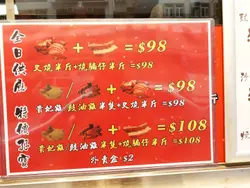 全日供應
+ = $98
叉燒半斤+燒腩仔半斤=$98
/ + = $98
貴妃雞/豉油雞半隻+叉燒半斤=$98
/ + = $108
貴妃雞/豉油雞半隻+燒腩仔半斤=$108
外賣盒:$2